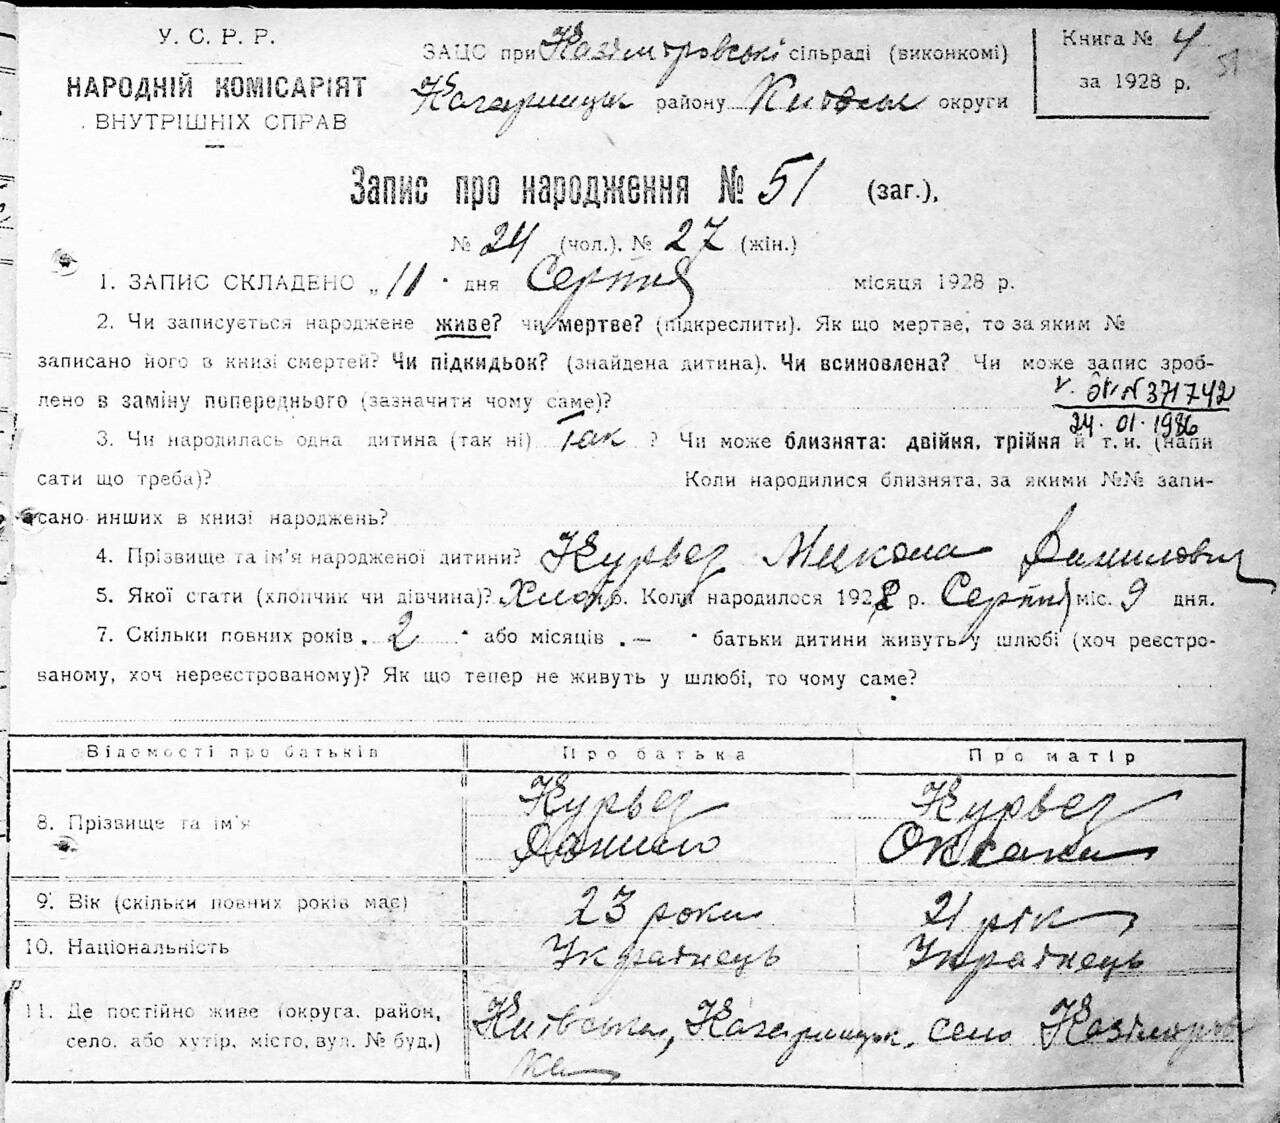 У. С. Р. Р.
НАРОДНІЙ КОМІСАРІЯТ
ВНУТРІШНІХ СПРАВ
ЗАЦС при Казімировські сільраді (виконкомі)
Кагарлицьк району Київськ округи
Книга № 4
за 1928 р.
51
Запис про народження № 51 (заг.),
№ 24 (чол.). № 27 (жін.)
1. ЗАПИС СКЛАДЕНО „11" дня Серпня місяця 1928 р.
2. Чи записується народжене живе? чи мертве? (підкреслити). Як що мертве, то за яким №
записано його в книзі смертей? Чи підкидьок? (знайдена дитина). Чи всиновлена? Чи може запис зроб-
лено в заміну попереднього (зазначити чому саме)?
N 371742
24.01.1986
3. Чи народилась одна дитина (так ні) Так ? Чи може близнята: двійня, трійня й т. и. (напи
сати що треба)? Коли народилися близнята, за якими №№ запи-
сано инших в книзі народжень?
4. Прізвище та ім'я народженої дитини? Курьез Микола Данилович
5. Якої стати (хлопчик чи дівчина)? Хлоп. 6. Коли народилося 1928 р. Серпня міс. 9 дня.
7. Скільки повних років 2 або місяців — батьки дитини живуть у шлюбі (хоч реєстро-
ваному, хоч нереєстрованому)? Як що тепер не живуть у шлюбі, то чому саме?
Відомості про батьків Про батька Про матір
8. Прізвище та ім'я Курьез Данило Курьез Оксана
9. Вік (скільки повних років має) 23 роки 21 рік
10. Національність Українець Українець
11. Де постійно живе (округа, район, село, або хутір, місто, вул. № буд.) Київська, Кагарлицьк, село Казімировка